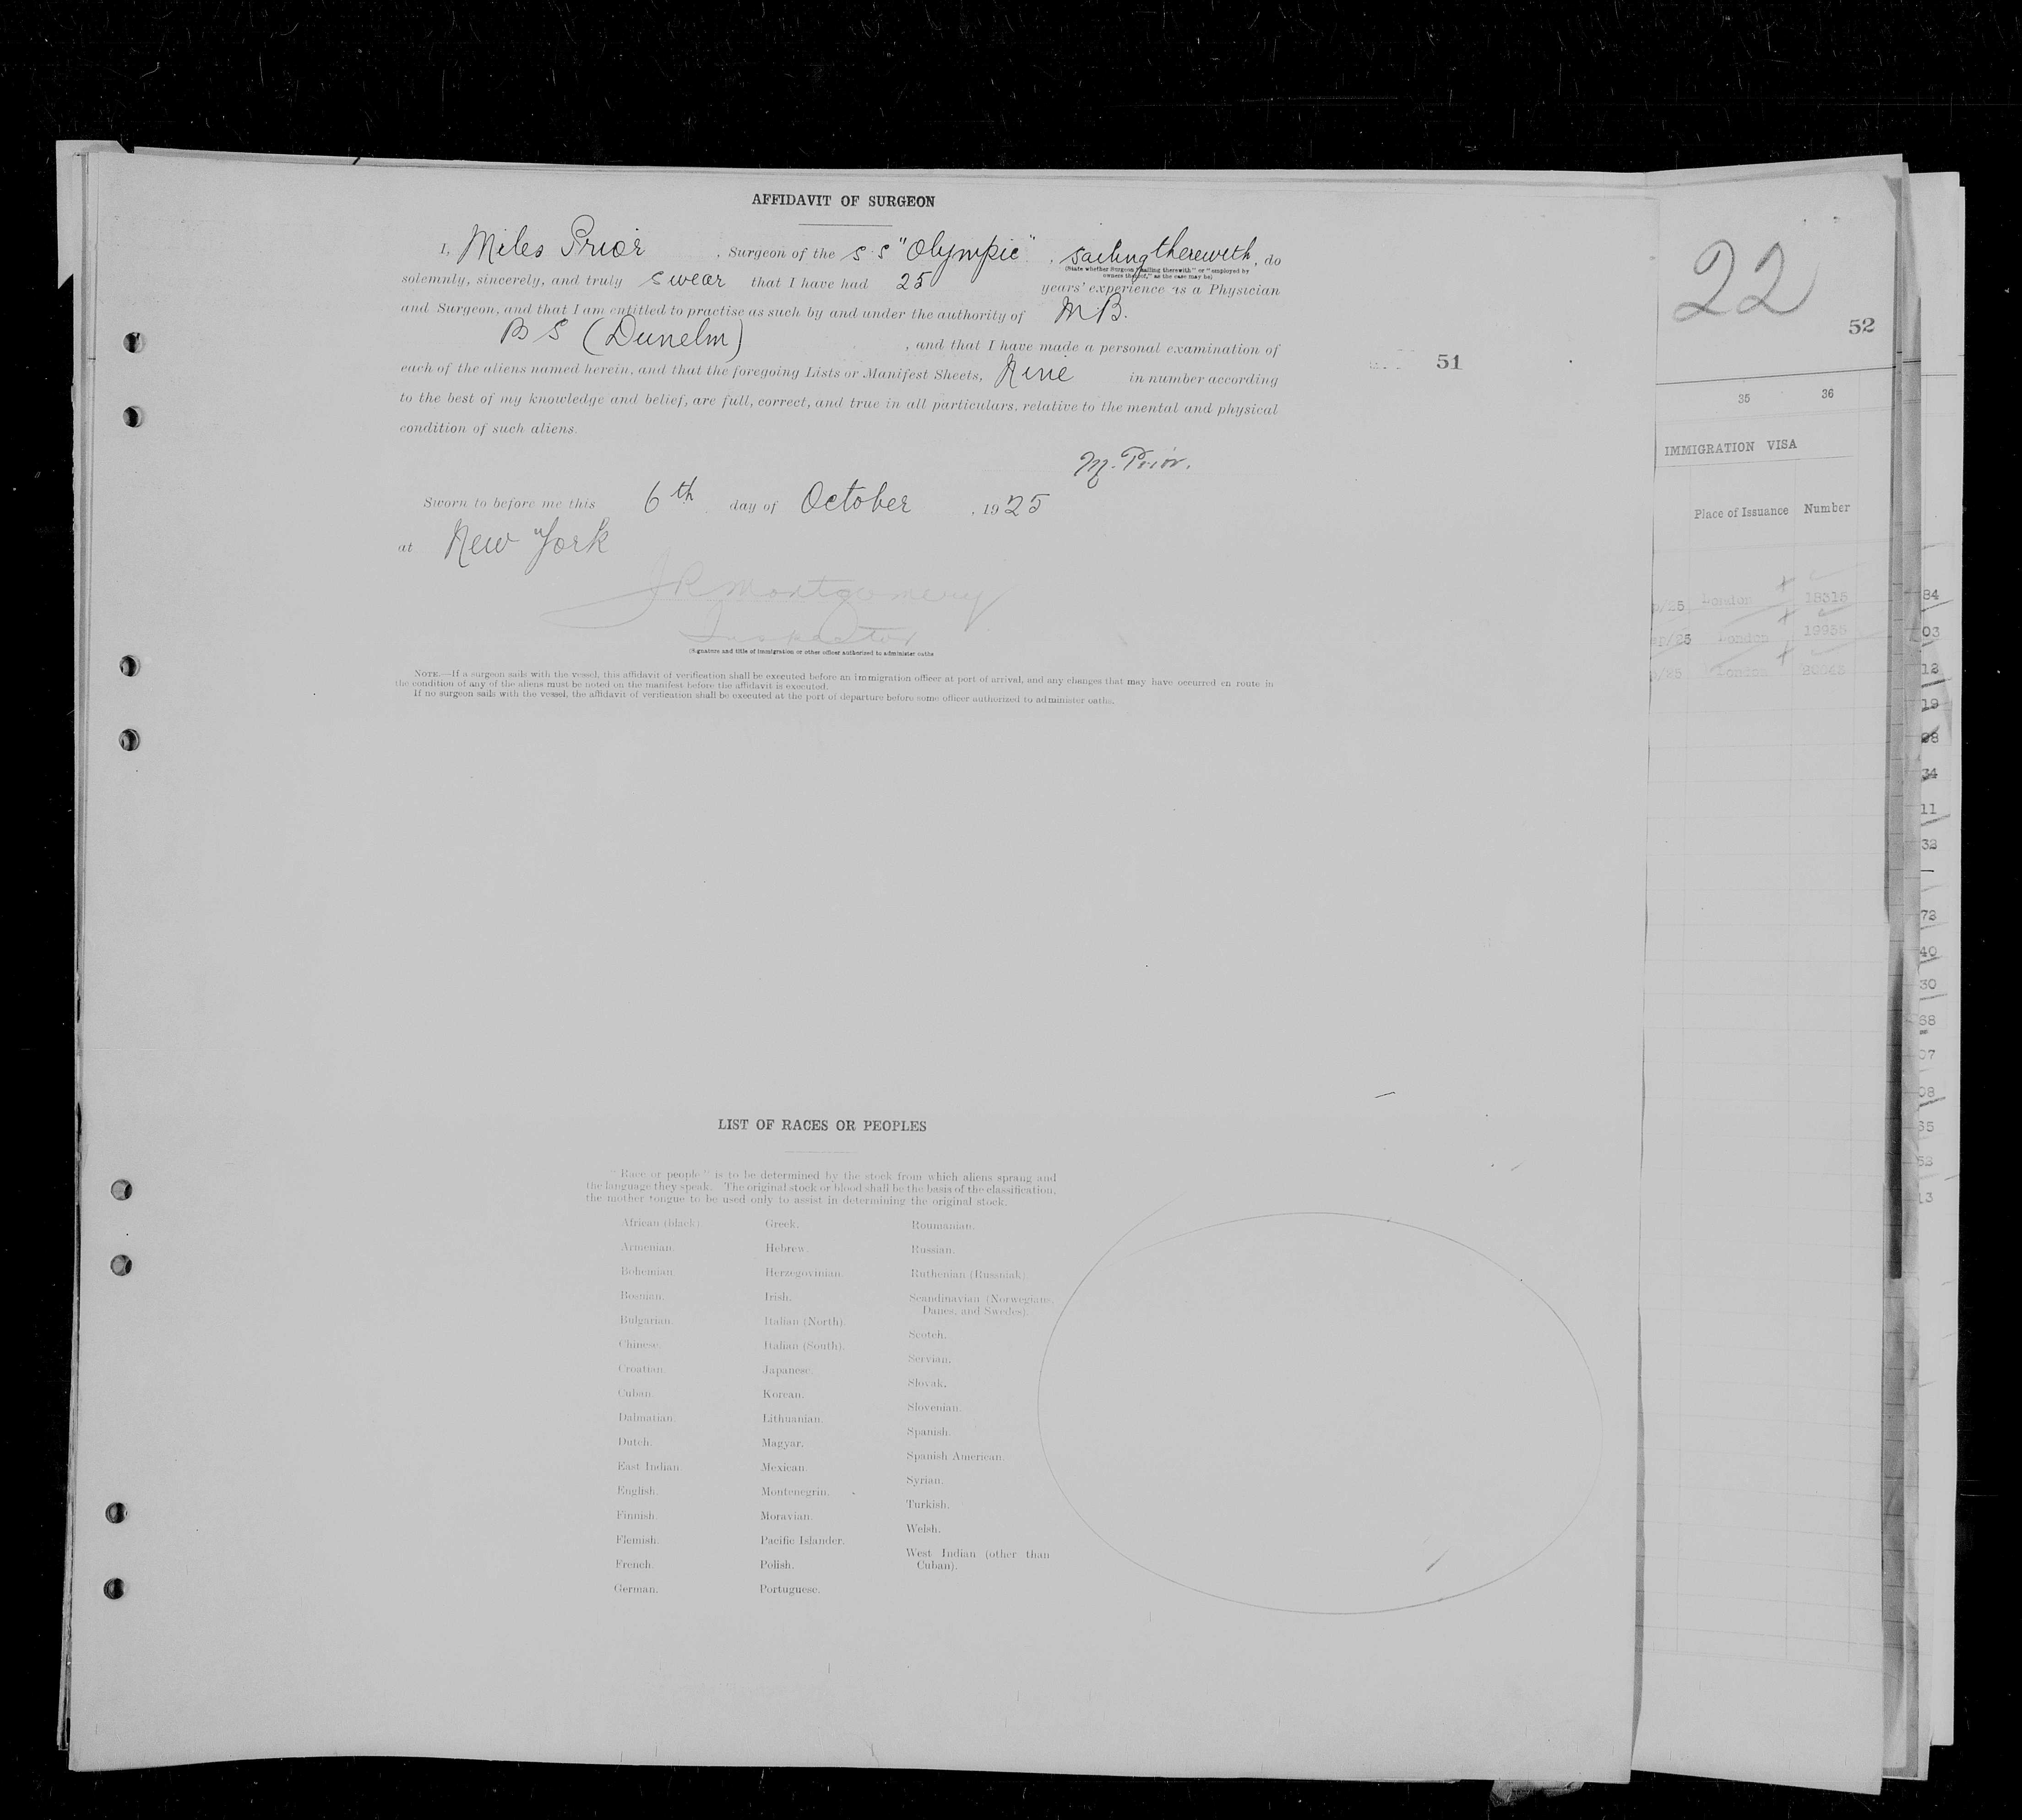 AFFIDAVIT OF SURGEON
I, Miles Prior, Surgeon of the S.S "Olympic", sailing therewith, do
(State whether Surgeon "sailing therewith" or "employed by
owners thereof," as the case may be)
solemnly, sincerely, and truly swear that I have had 25 years' experience as a Physician
and Surgeon, and that I am entitled to practise as such by and under the authority of M B.
B S (Dunelm), and that I have made a personal examination of
51
each of the aliens named herein, and that the foregoing Lists or Manifest Sheets, Nine in number according
to the best of my knowledge and belief, are full, correct, and true in all particulars, relative to the mental and physical
condition of such aliens.
M. Prior.
Sworn to before me this 6th day of October, 1925
at New York
J R Montgomery
Inspector
(Signature and title of immigration or other officer authorized to administer oaths
NOTE.—If a surgeon sails with the vessel, this affidavit of verification shall be executed before an immigration officer at port of arrival, and any changes that may have occurred en route in
the condition of any of the aliens must be noted on the manifest before the affidavit is executed.
If no surgeon sails with the vessel, the affidavit of verification shall be executed at the port of departure before some officer authorized to administer oaths.
LIST OF RACES OR PEOPLES
"Race or people" is to be determined by the stock from which aliens sprang and
the language they speak. The original stock or blood shall be the basis of the classification,
the mother tongue to be used only to assist in determining the original stock.
African (black)
Armenian.
Bohemian.
Bosnian.
Bulgarian.
Chinese.
Croatian.
Cuban.
Dalmatian.
Dutch.
East Indian.
English.
Finnish.
Flemish.
French.
German.
Greek.
Hebrew.
Herzegovinian.
Irish.
Italian (North).
Italian (South).
Japanese.
Korean.
Lithuanian.
Magyar.
Mexican.
Montenegrin.
Moravian.
Pacific Islander.
Polish.
Portuguese.
Roumanian.
Russian.
Ruthenian (Russniak).
Scandinavian (Norwegians,
Danes, and Swedes).
Scotch.
Servian.
Slovak.
Slovenian.
Spanish.
Spanish American.
Syrian.
Turkish.
Welsh.
West Indian (other than
Cuban).
22
52
35 36
IMMIGRATION VISA
Place of Issuance Number
p/25 London 18315
ep/25 London 19955
p/25 London
84
03
18
19
98
34
11
38
73
40
30
68
07
08
65
53
13